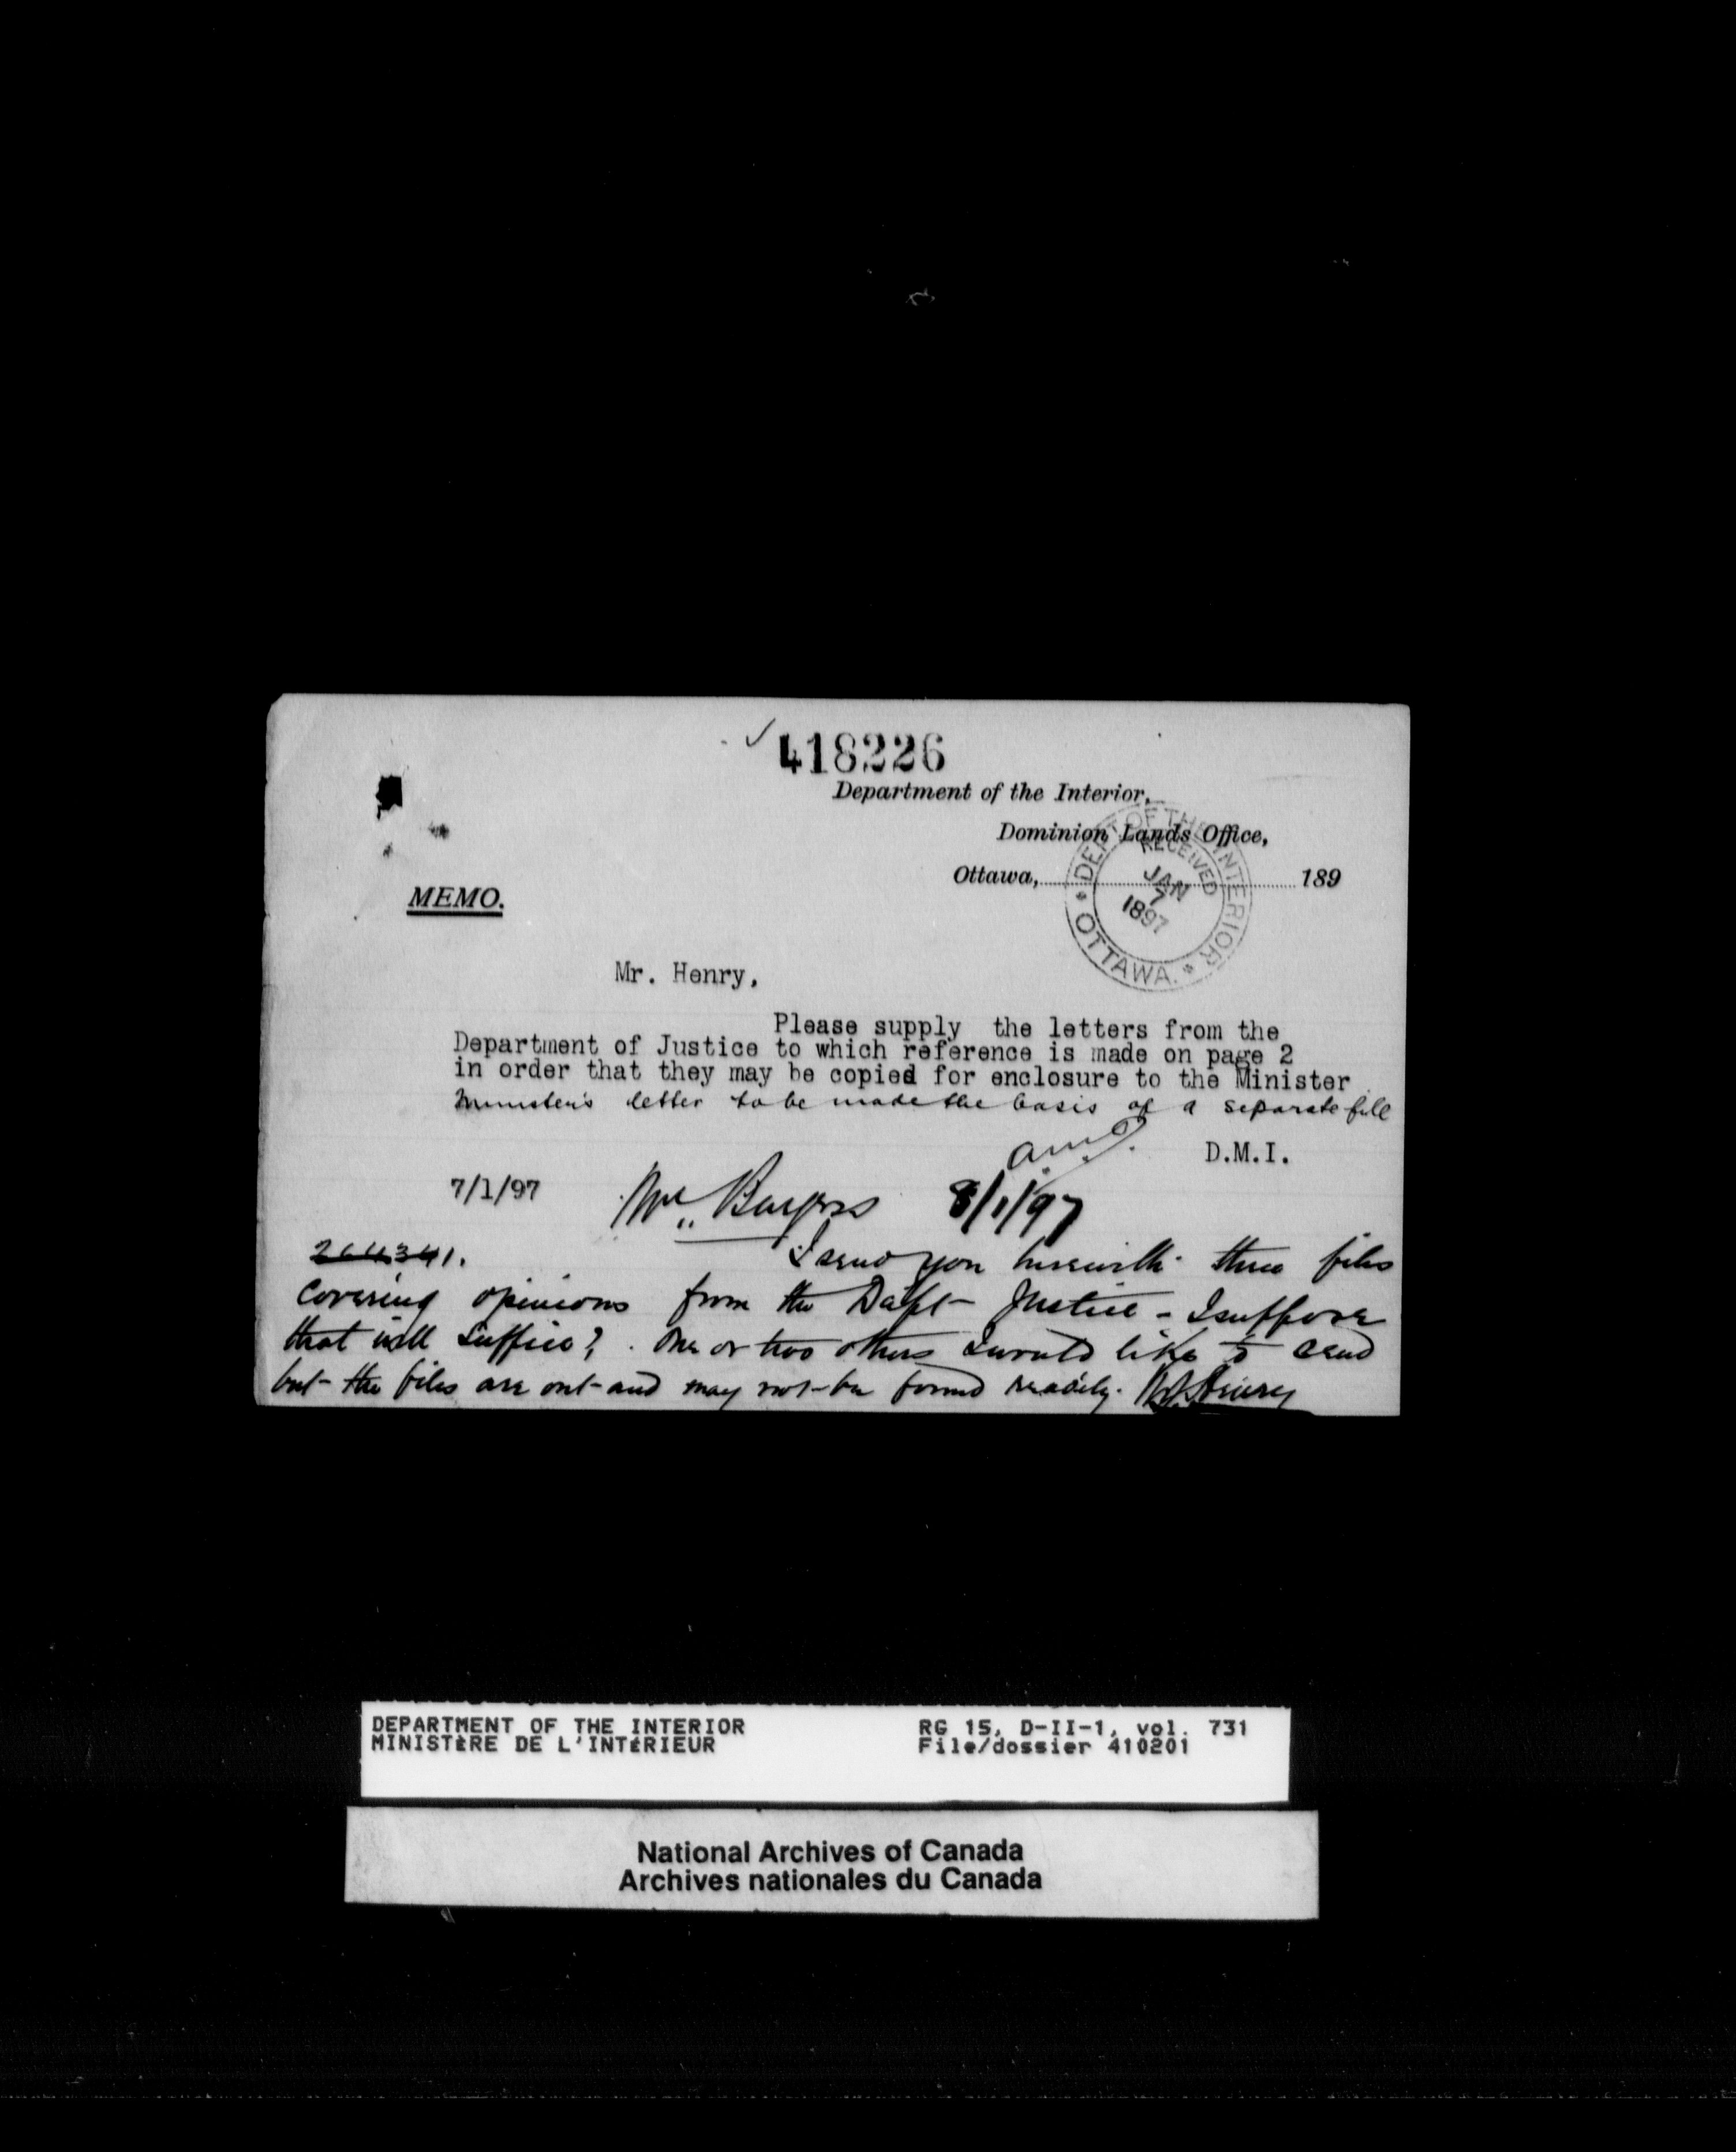 418226
Department of the Interior,
Dominion Lands Office,
Ottawa, 189
DEPT OF THE INTERIOR
RECEIVED
JAN
7
1897
OTTAWA.
MEMO.
Mr. Henry,
Please supply the letters from the
Department of Justice to which reference is made on page 2
in order that they may be copied for enclosure to the Minister
Minister's letter to be made the basis of a separate file
D.M.I.
7/1/97
Mr. Burgess 8/1/97
264341.
I send you herewith three files
covering opinions from the Dept Justice - I suppose
that will suffice? One or two others I would like to send
but the files are out and may not be found readily. Henry
DEPARTMENT OF THE INTERIOR RG 15, D-II-1, vol. 731
MINISTÈRE DE L'INTÉRIEUR File/dossier 410201
National Archives of Canada
Archives nationales du Canada